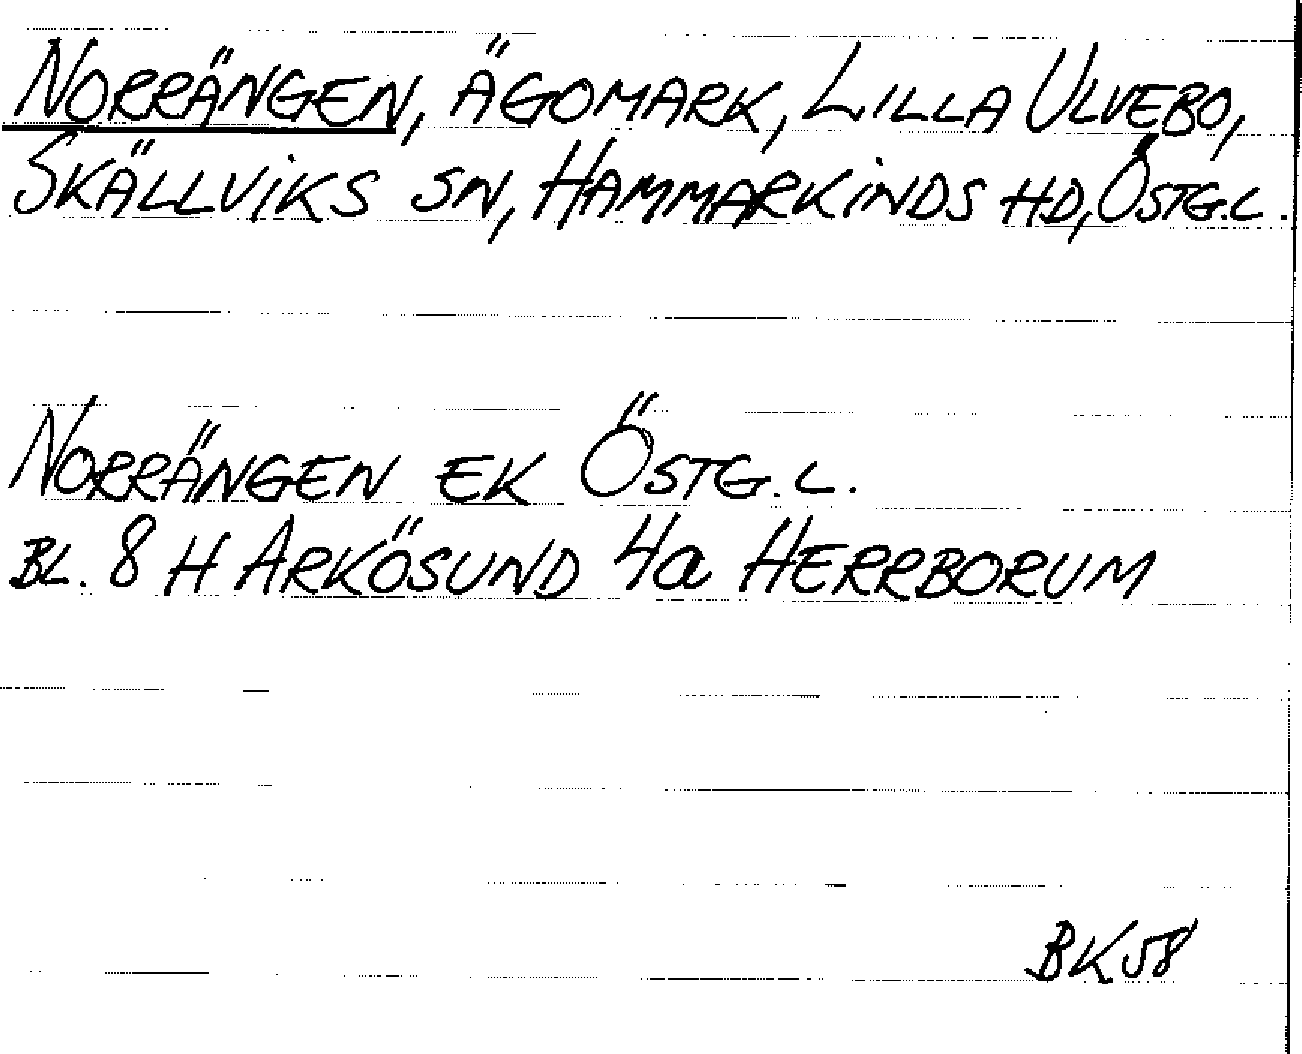 NORRÄNGEN, ÄGOMARK, LILLA ULVEBO,
SKÄLLVIKS SN, HAMMARKINDS HD, ÖSTG.L.
NORRÄNGEN EK ÖSTG.L.
BL. 8 H ARKÖSUND 4a HERRBORUM
BK58